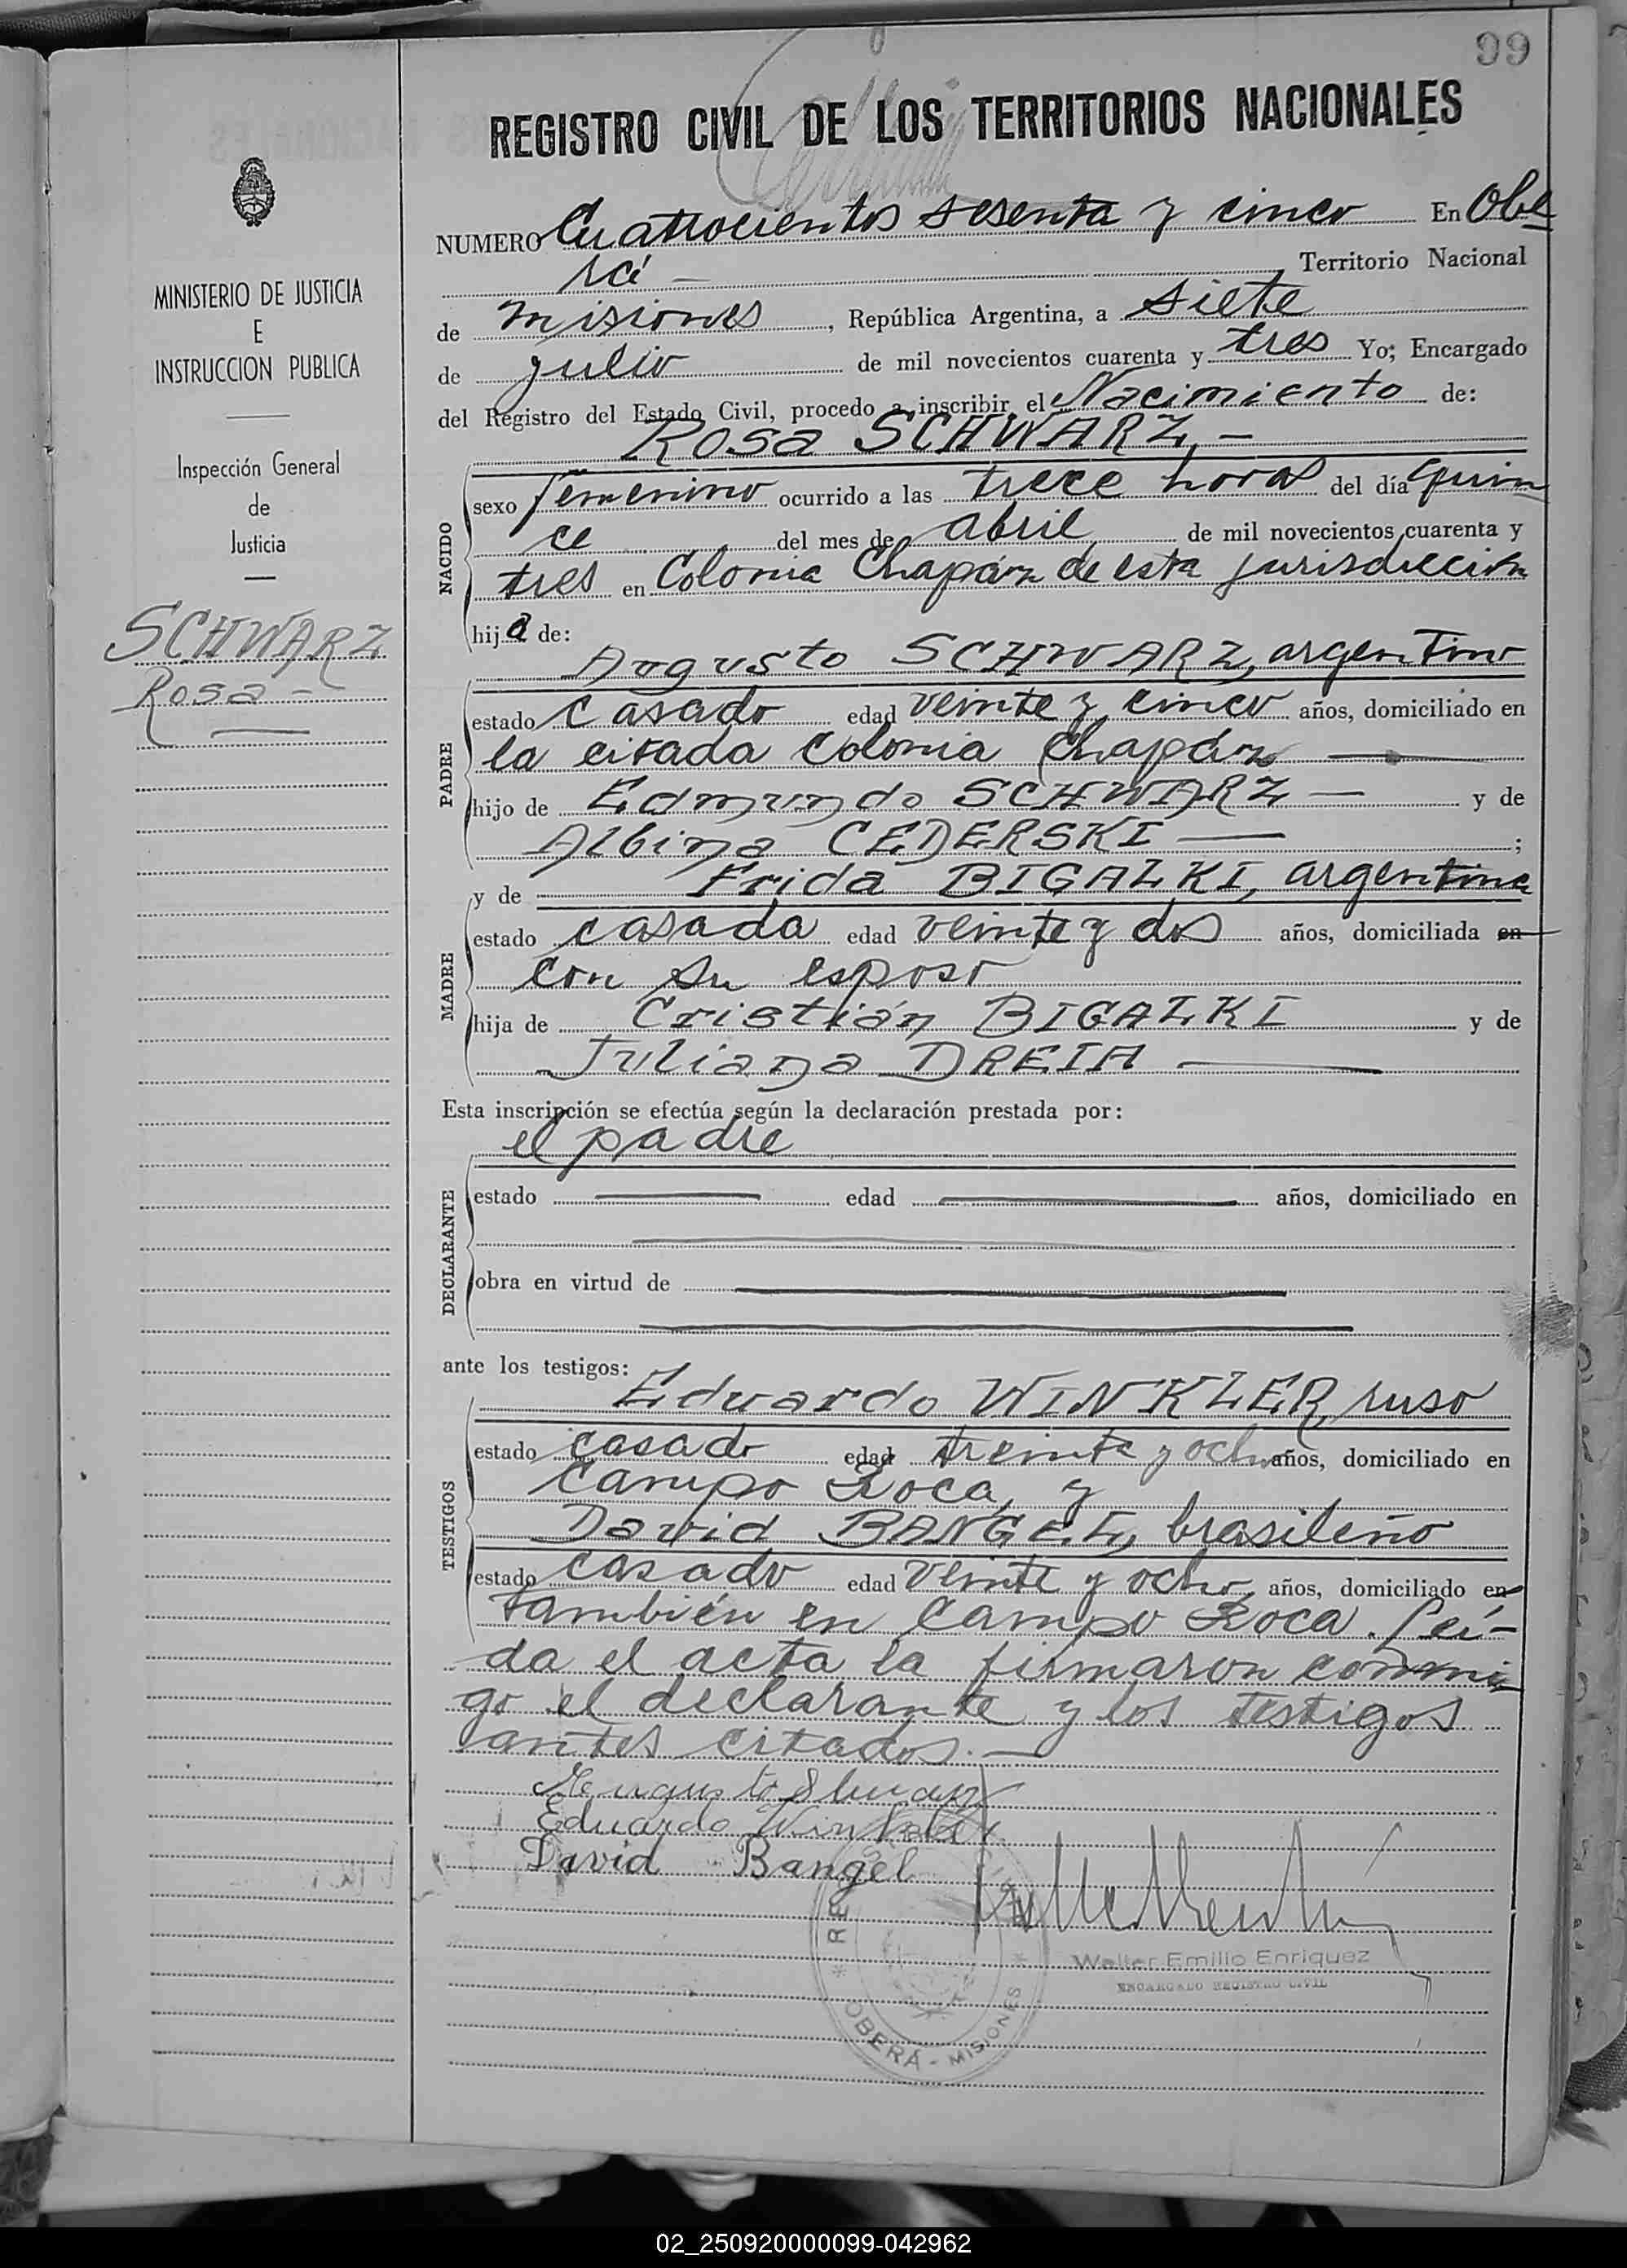 99
REGISTRO CIVIL DE LOS TERRITORIOS NACIONALES
MINISTERIO DE JUSTICIA
E
INSTRUCCION PUBLICA
Inspección General
de
Justicia
SCHWARZ
Rosa -
NUMERO Cuatrocientos sesenta y cinco En Obe
rá - Territorio Nacional
de misiones, República Argentina, a siete
de julio de mil novecientos cuarenta y tres Yo; Encargado
del Registro del Estado Civil, procedo a inscribir el Nacimiento de:
Rosa SCHWARZ, -
NACIDO
sexo femenino ocurrido a las trece horas del día quin
ce del mes de abril de mil novecientos cuarenta y
tres en Colonia Chapáz de esta jurisdicción
hija de:
Augusto SCHWARZ, argentino
PADRE
estado casado edad veinte y cinco años, domiciliado en
la citada Colonia Chapáz —
hijo de Edmundo SCHWARZ — y de
Albina CEDERSKI — ;
y de Frida BIGALKI, argentina
MADRE
estado casada edad veinte y dos años, domiciliada en
con su esposo
hija de Cristián BIGALKI y de
Juliana DREIA —
Esta inscripción se efectúa según la declaración prestada por:
el padre
DECLARANTE
estado — edad — años, domiciliado en
obra en virtud de —
ante los testigos:
Eduardo WINKLER, ruso
TESTIGOS
estado casado edad treinta y ocho años, domiciliado en
Campo Roca, y
David BANGEL, brasileño
estado casado edad veinte y ocho años, domiciliado en
también en Campo Roca. Leí-
da el acta la firmaron conmi
go el declarante y los testigos
antes citados. —
Augusto Shwarz
Eduardo Winkler
David Bangel
Walter Emilio Enriquez
ENCARGADO REGISTRO CIVIL
OBERÁ - MISIONES
02_250920000099-042962